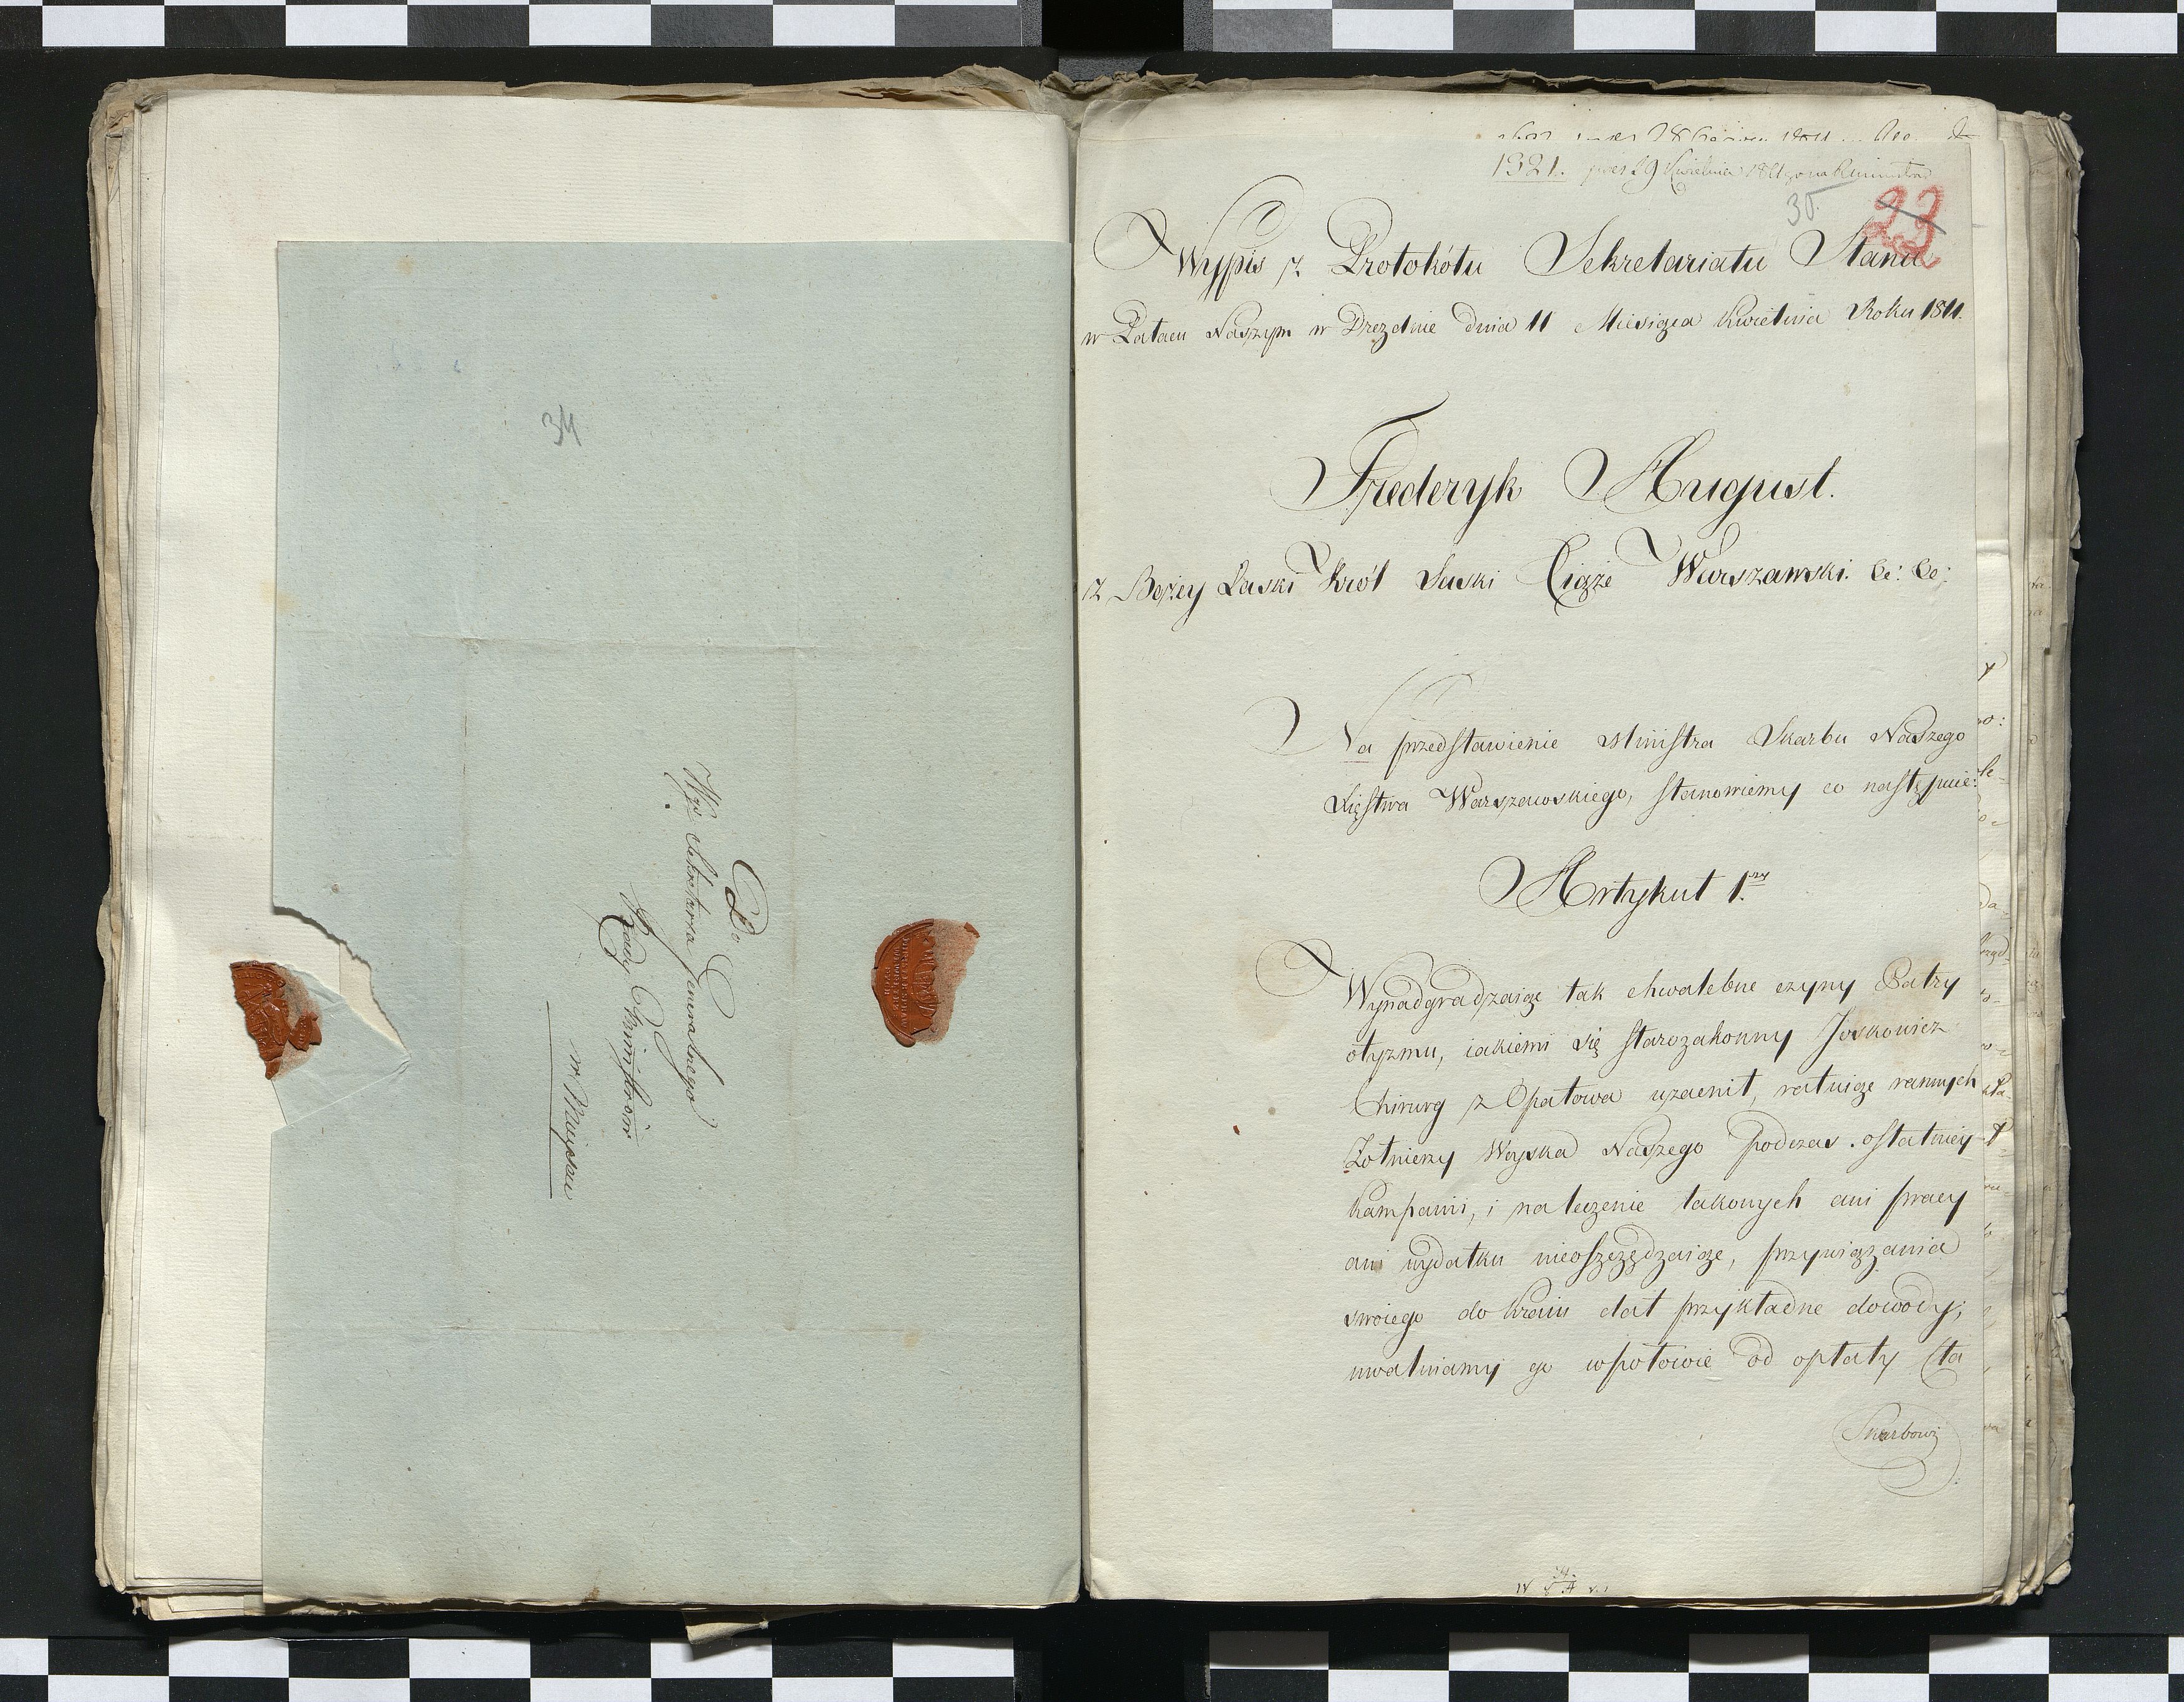 34
Do
Wgo Sekretarza Jeneralnego
Rady Ministrów
w Mieyscu
1321. pres 29 Kwietnia
30.
23
Wypis z Protokółu Sekretariatu Stanu
w Pałacu Naszym w Dreznie dnia 11 Miesiąca Kwietnia Roku 1811.
Frederyk August.
z Bożey Łaski Król Saski Xiąże Warszawski. &c: &c:
Na przedstawienie Ministra Skarbu Naszego
Xięstwa Warszawskiego, stanowiemy co następuie:
Artykuł 1.szy
Wynadgradzaiąc tak chwalebne czyny Patry
otyzmu, iakiemi się starozakonny Joskowicz
Chirurg z Opatowa uzacnił, ratuiąc rannych
Żołnierzy Woyska Naszego podczas ostatniey
Kampanii, i na leczenie takowych ani pracy
ani wydatku nieoszczędzaiąc, przywiązania
swoiego do Kraiu dał przykładne dowody;
uwalniamy go wpołowie od opłaty (ta
Skarbowi